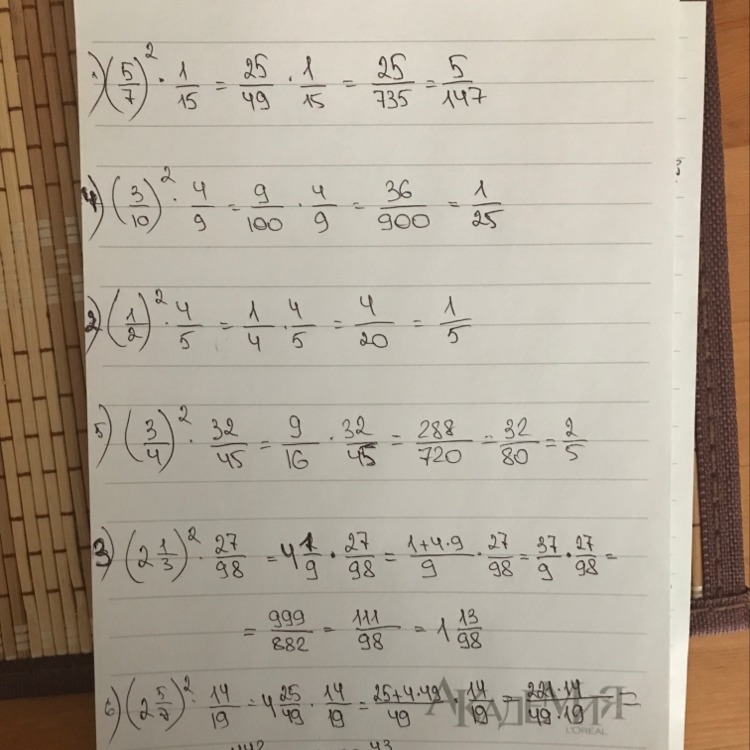 1) (5/7)² · 1/15 = 25/49 · 1/15 = 25/735 = 5/147
4) (3/10)² · 4/9 = 9/100 · 4/9 = 36/900 = 1/25
2) (1/2)² · 4/5 = 1/4 · 4/5 = 4/20 = 1/5
5) (3/4)² · 32/45 = 9/16 · 32/45 = 288/720 = 32/80 = 2/5
3) (2 1/3)² · 27/98 = 4 1/9 · 27/98 = 1+4·9/9 · 27/98 = 37/9 · 27/98 =
= 999/882 = 111/98 = 1 13/98
6) (2 5/7)² · 14/19 = 4 25/49 · 14/19 = 25+4·49/49 · 14/19 = 221·14/49·19 =
АКАДЕМИЯ
L'OREAL